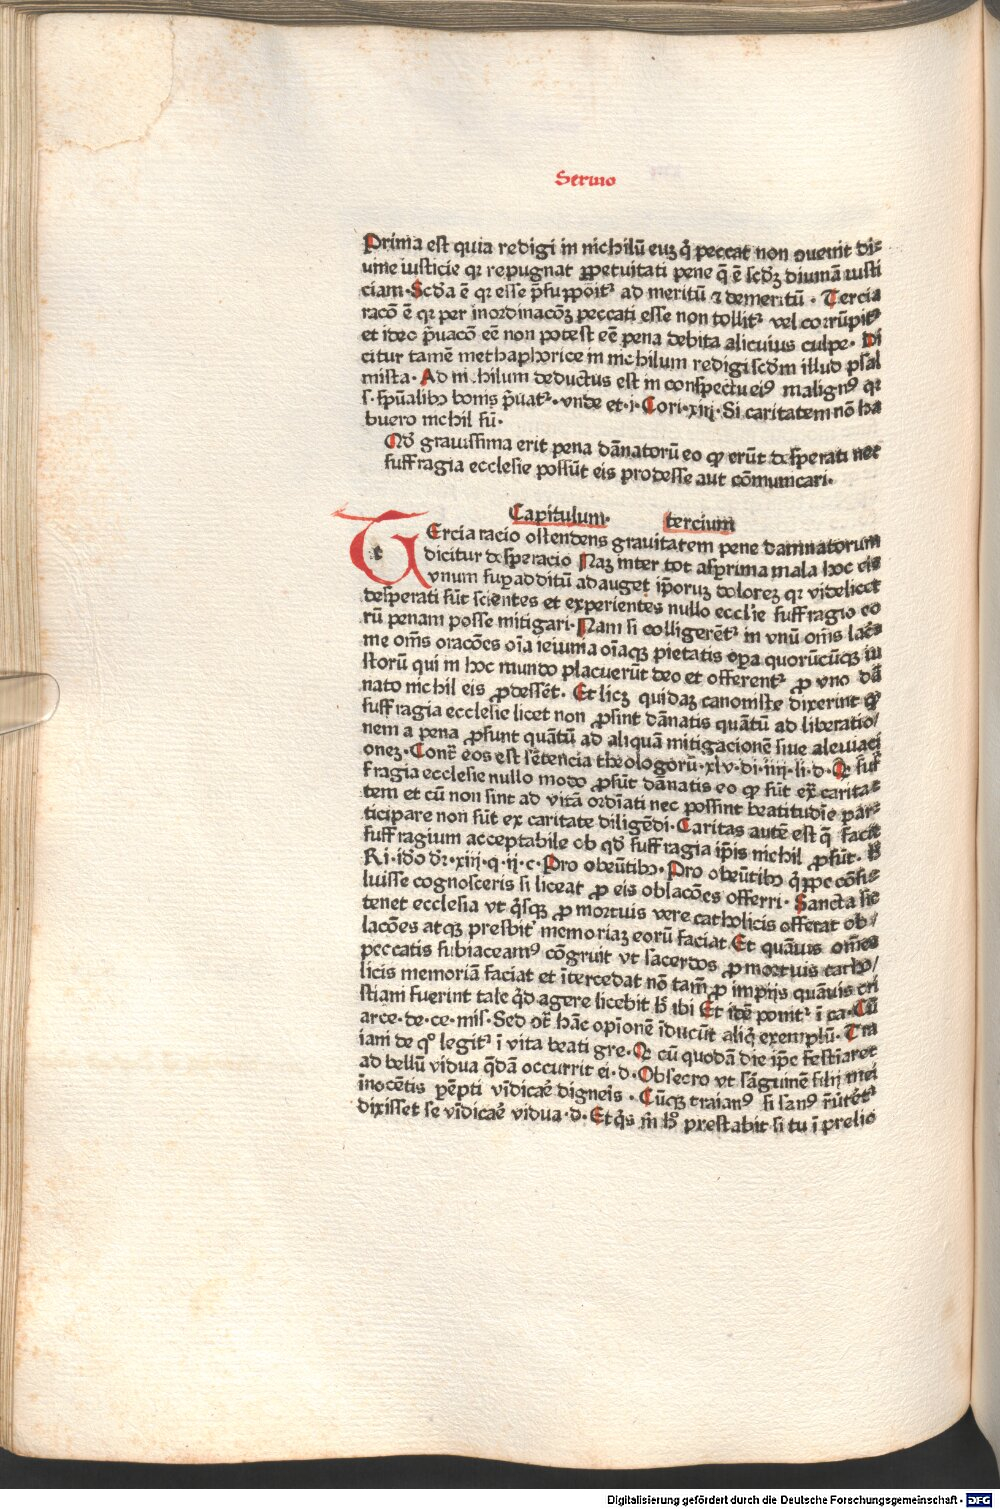 Sermo
Prima est quia redigi in nichilū euʒ q̄ peccat non ꝯuenit di⸗
uine iusticie qꝛ repugnat ꝑpetuitati pene q̄ ē scđʒ diuinā iusti
ciam·Scđa ē qꝛ esse p̄supponit᷑ ad meritū ⁊ demeritū · Tercia
racō ē qꝛ per inordinacōʒ peccati esse non tollit᷑ vel corrūpit᷑
et ideo p̄uacō eē non potest eē pena debita alicuius culpe· Di
citur tamē methaphorice in nichilum redigi scđm illud psal
mista· Ad nichilum deductus est in conspectu eiꝰ malignꝰ qꝛ
s·spūalibꝰ bonis p̄uat᷑·vnde et·i·Cori·xiij·Si caritatem nō ha
buero nichil sū·
Qđ grauissima erit pena dānatorū eo ꝙ erūt desperati nec
suffragia ecclesie possūt eis prodesse aut cōmunicari·
Capitulum· tercium
TErcia racio ostendens grauitatem pene damnatorum
dicitur desperacio Naʒ inter tot asprima mala hoc eis
vnum suꝑadditū adauget ip̄oruʒ doloreʒ qꝛ videlicet
desperati sūt scientes et experientes nullo eccl'ie suffragio eo
rū penam posse mitigari·Nam si colligerēt᷑ in vnū om̄s lac̄⸗
me om̄s oracōes oīa ieiunia oīaqʒ pietatis oꝑa quorūcūqʒ iu
storū qui in hoc mundo placuerūt deo et offerent᷑ ꝓ vno dā
nato nichil eis ꝓdessēt· Et licʒ quidaʒ canoniste dixerint ꝙ
suffragia ecclesie licet non ꝓsint dānatis quātū ad liberatio/
nem a pena ꝓsunt quātū ad aliquā mitigacionē siue aleuiaci
oneʒ·Contr̄ eos est sētencia theologorū·xlv·di·iiij·li·d·Q suf
fragia ecclesie nullo modo ꝓsūt dānatis eo ꝙ sūt ex̄ carita⸗
tem et cū non sint ad vitā ordīati nec possint beatitudīe par⸗
ticipare non sūt ex caritate diligēdi·Caritas autē est q̄ facit
suffragium acceptabile ob qđ suffragia ip̄is nichil ꝓsūt· H̄
Ri·ido dꝛ·xiij·q·ij·c·Pro obeūtibꝰ·Pro obeūtibꝰ q̄ppe cōsu⸗
luisse cognosceris si liceat ꝓ eis oblacōes offerri·Sancta sic
tenet ecclesia vt q̇sqʒ ꝓ mortuis vere catholicis offerat ob/
lacōes atqʒ presbit᷑ memoriaʒ eorū faciat Et quāuis om̄es
peccatis subiaceamꝰ cōgruit vt sacerdos ꝓ mortuis catho/
licis memoriā faciat et ītercedat nō tam̄ ꝓ impijs quāuis cri
stiani fuerint tale q̇d agere licebit h̄ ibi Et idē ponit᷑ ī ca·Cū
arce·de·ce·mis·Sed ꝯt̄ hāc opīonē īducūt aliq̇ exemplū· Tra
iani de qº legit᷑ ī vita beati gre·Q cū quodā die ip̄e festiaret
ad bellū vidua q̄dā occurrit ei·d·Obsecro vt sāguinē filij mei
īnocētis ꝑēpti vīdicar̄ digneis · Cūqʒ traianꝰ si sanꝰ r̄utēt᷑
dixisset se vīdicar̄ vidua·d·Et q̇s m̄ hº prestabit si tu ī prelio
Digitalisierung gefördert durch die Deutsche Forschungsgemeinschaft - DFG